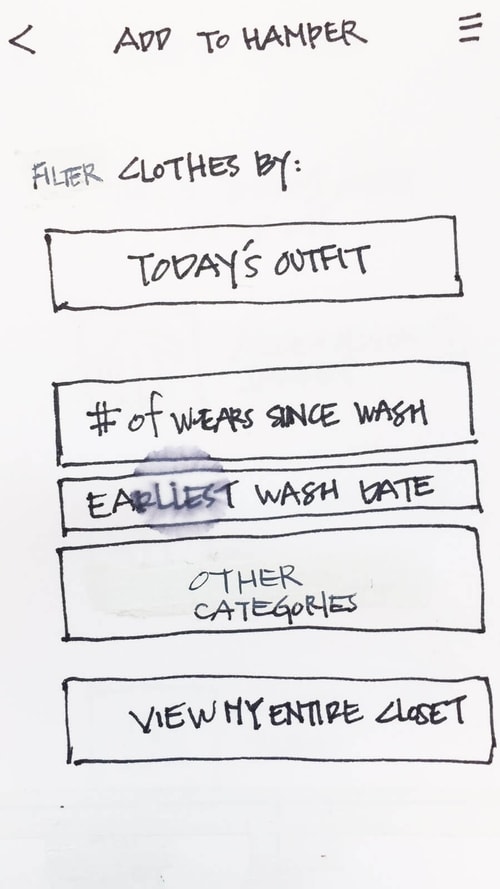 < ADD TO HAMPER
FILTER CLOTHES BY:
TODAY'S OUTFIT
# of WEARS SINCE WASH
EARLiEST WASH DATE
OTHER
CATEGORIES
VIEW MY ENTIRE CLOSET